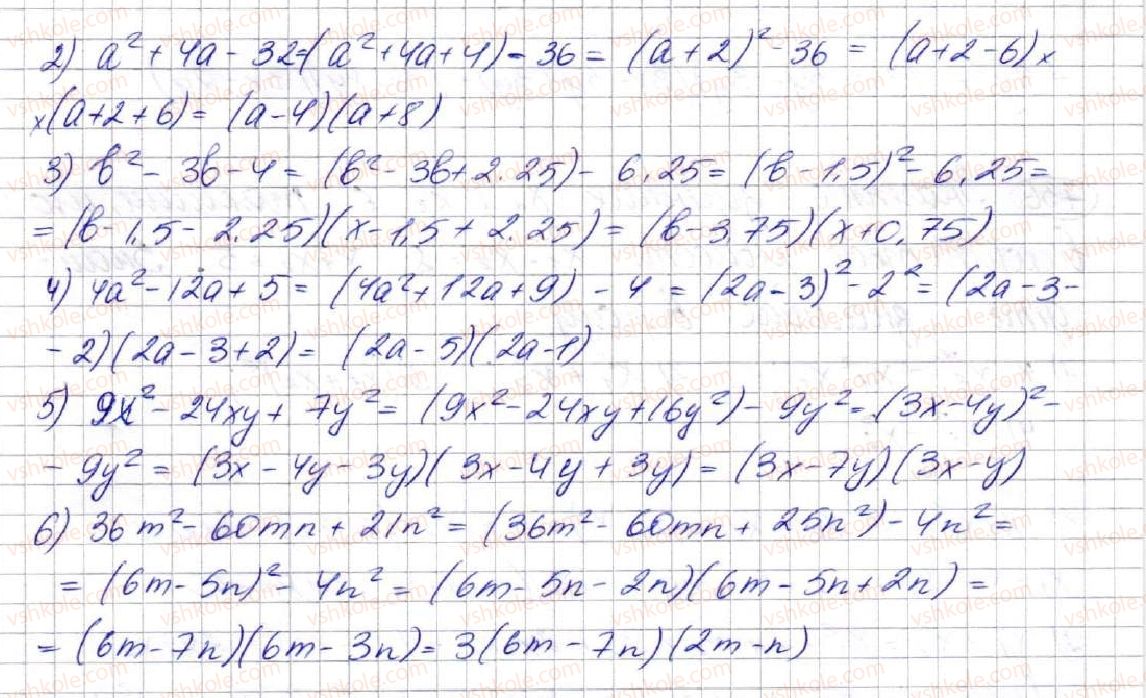 2) a² + 4a - 32 = (a² + 4a + 4) - 36 = (a + 2)² - 36 = (a + 2 - 6) ×
× (a + 2 + 6) = (a - 4)(a + 8)
3) b² - 3b - 4 = (b² - 3b + 2.25) - 6,25 = (b - 1,5)² - 6,25 =
= (b - 1,5 - 2.25)(x - 1,5 + 2.25) = (b - 3,75)(x + 0,75)
4) 4a² - 12a + 5 = (4a² + 12a + 9) - 4 = (2a - 3)² - 2² = (2a - 3 -
- 2)(2a - 3 + 2) = (2a - 5)(2a - 1)
5) 9x² - 24xy + 7y² = (9x² - 24xy + 16y²) - 9y² = (3x - 4y)² -
- 9y² = (3x - 4y - 3y)(3x - 4y + 3y) = (3x - 7y)(3x - y)
6) 36m² - 60mn + 21n² = (36m² - 60mn + 25n²) - 4n² =
= (6m - 5n)² - 4n² = (6m - 5n - 2n)(6m - 5n + 2n) =
= (6m - 7n)(6m - 3n) = 3(6m - 7n)(2m - n)
vshkole.com